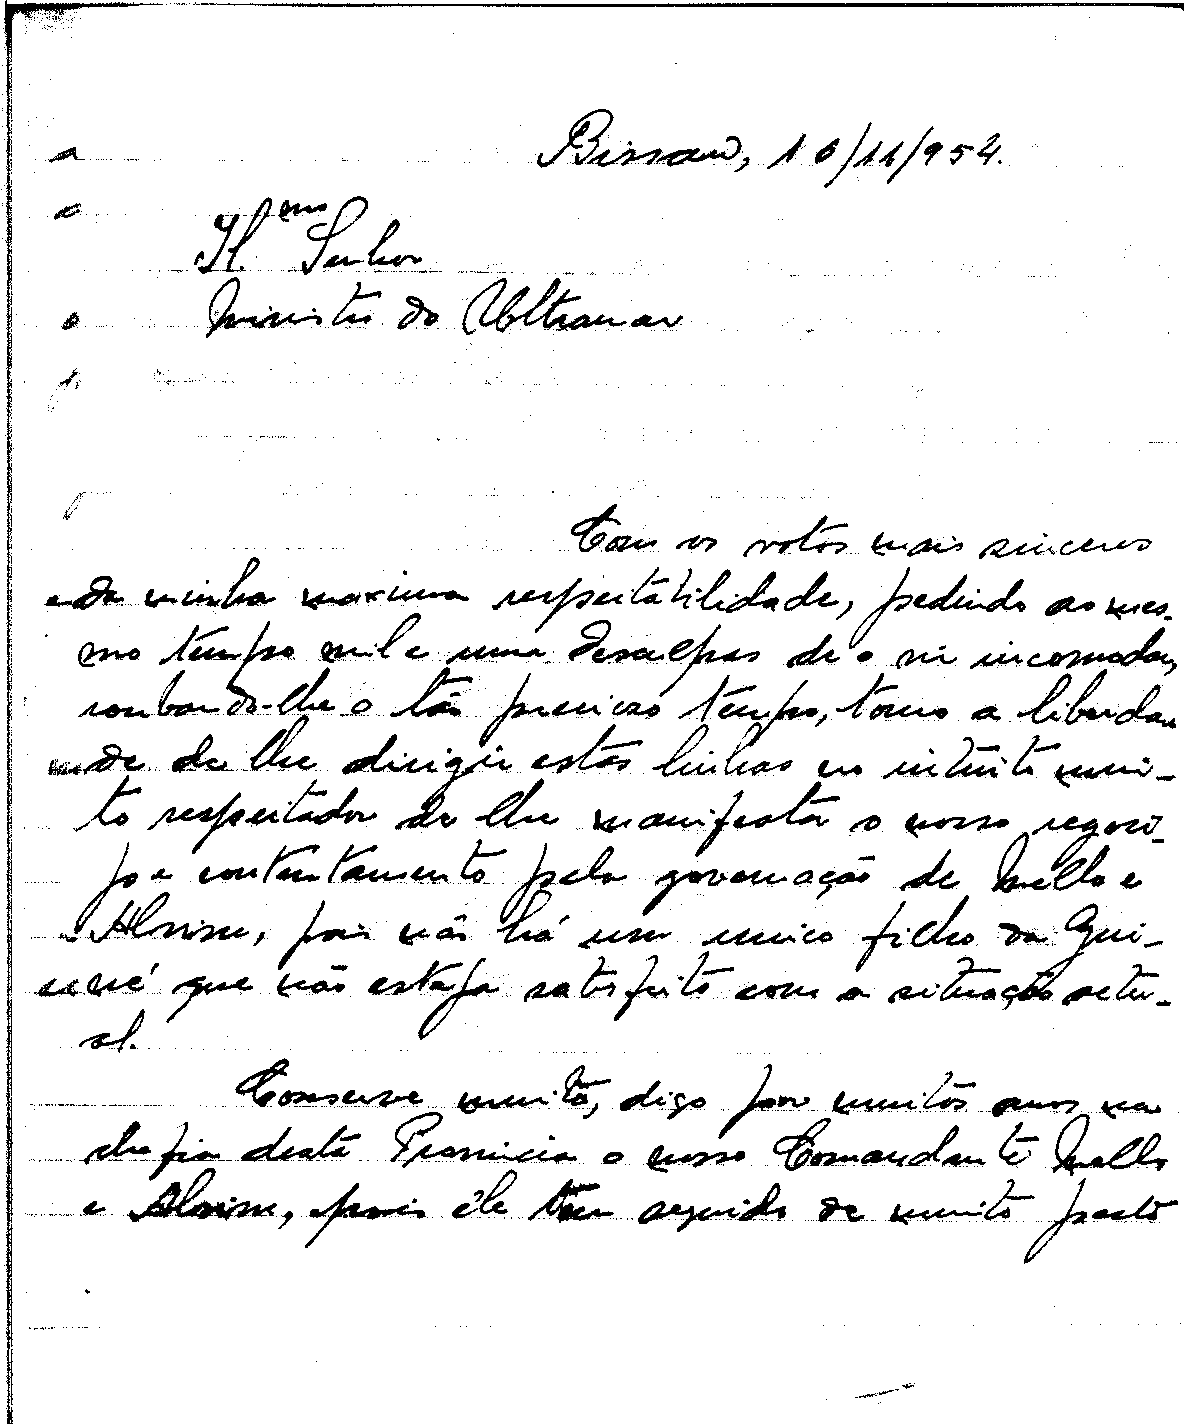 Bissau, 10/11/954.
Il.mo Senhor
Ministro do Ultramar
Com os votos mais sinceros
da minha maxima respeitabilidade, pedindo ao mes-
mo tempo mil e uma desculpas de o vir incomodar,
roubando-lhe o tão precioso tempo, tomo a liberda-
de de lhe dirigir estas linhas no intuito mui-
to respeitador de lhe manifestar o nosso regosi-
jo e contentamento pela governação de Mello e
Alvim, pois não há um unico filho da Gui-
né que não esteja satisfeito com a situação actu-
al.
Conserve muito, digo por muitos anos na
chefia desta Provincia o nosso Comandante Mello
e Alvim, pois êle tem seguido de muito perto